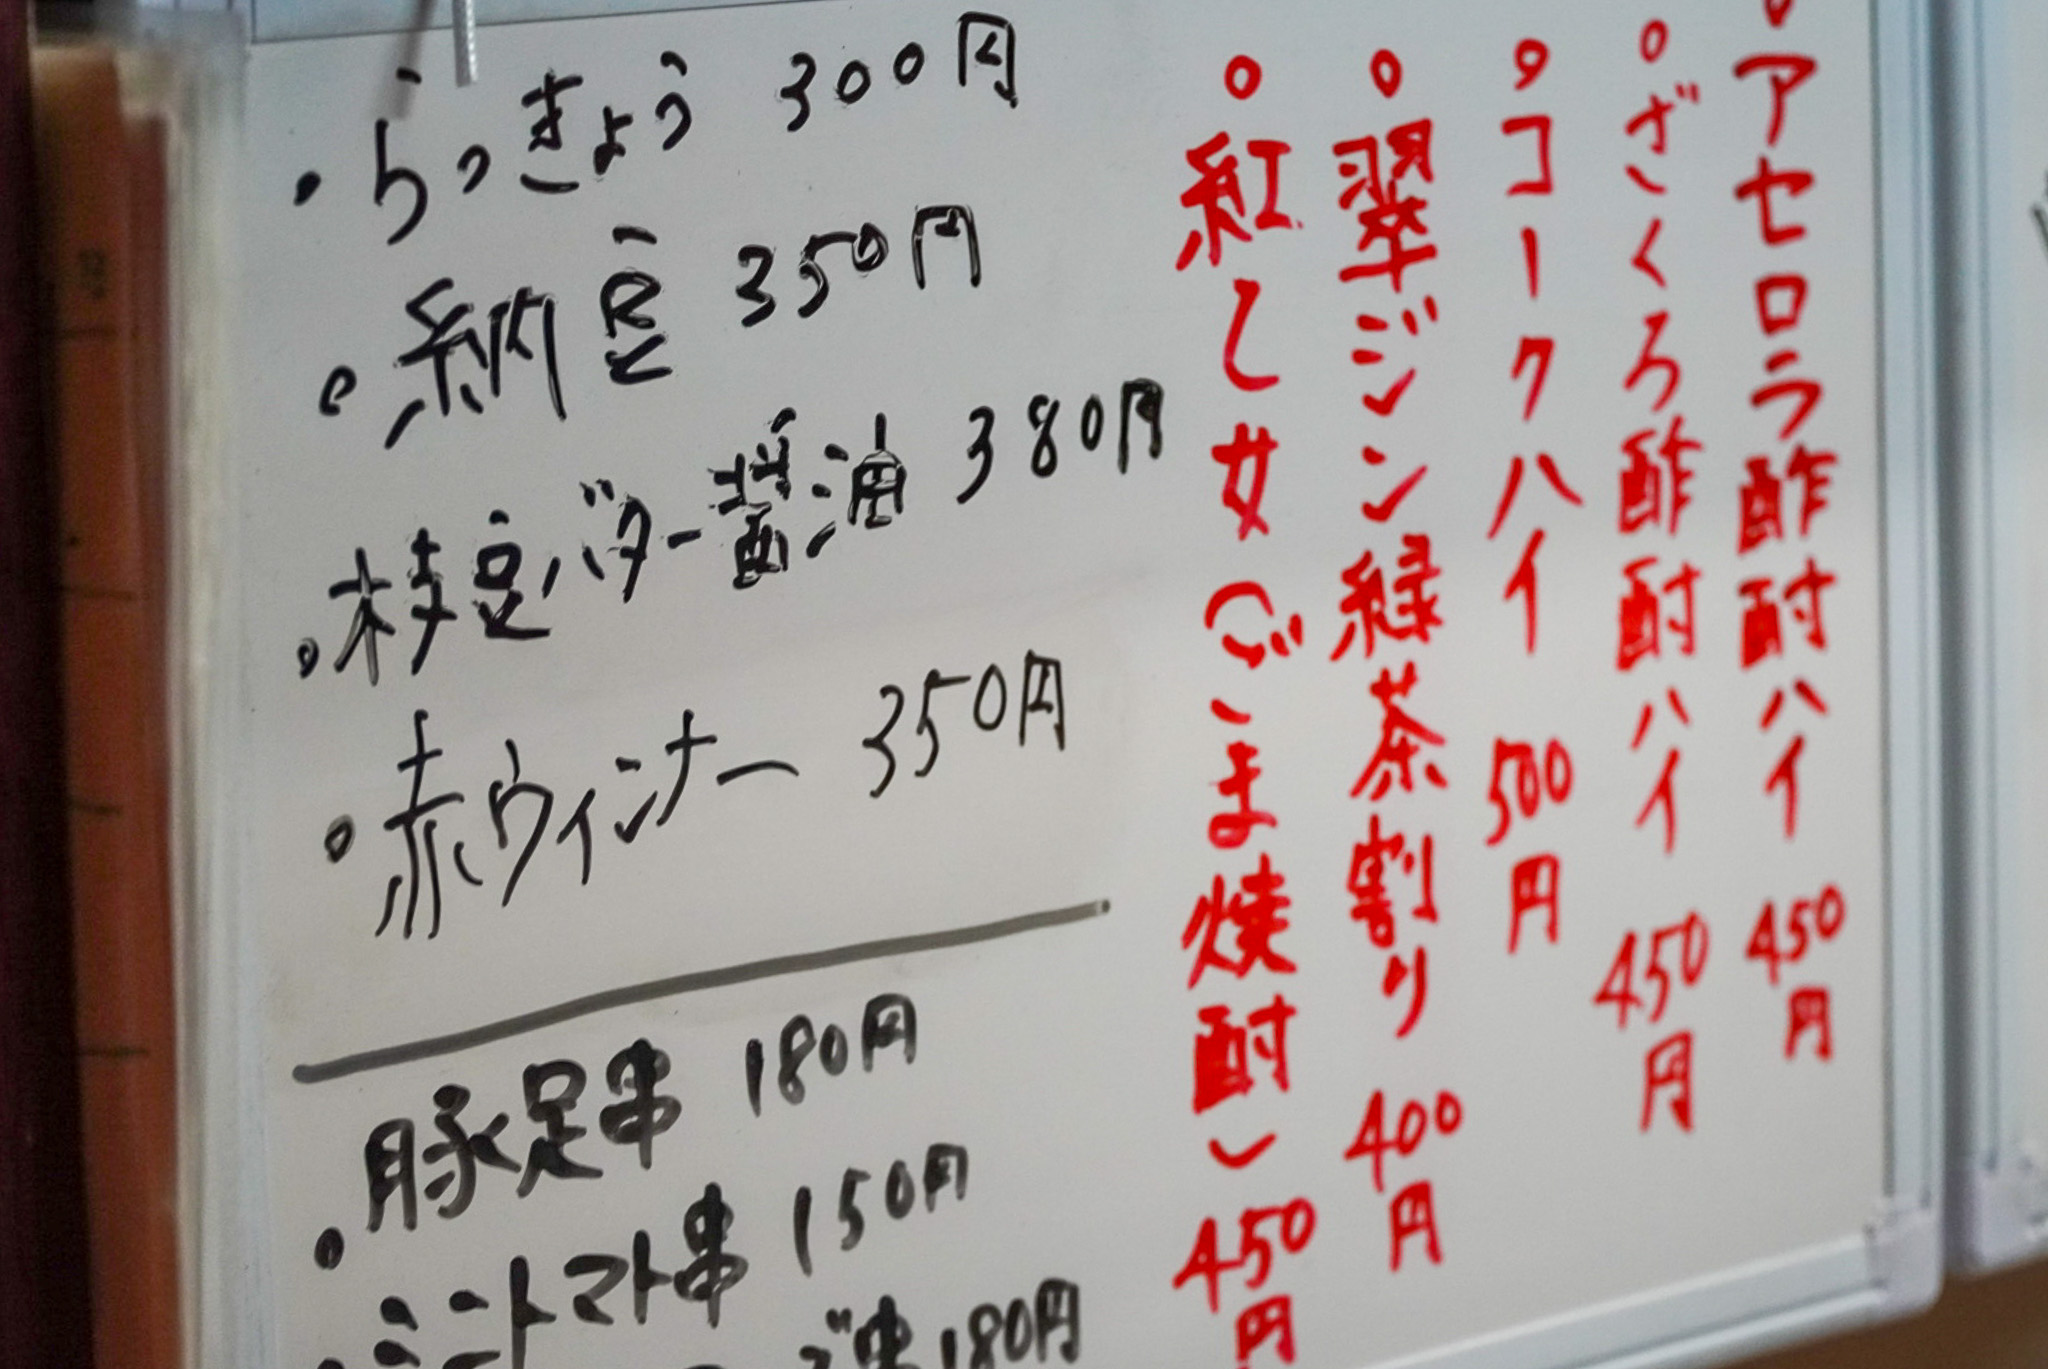 ・らっきょう 300円
・納豆 350円
・枝豆バター醤油 380円
・赤ウィンナー 350円
豚足串 180円
・ミニトマト串 150円
串 180円
・アセロラ酢酎ハイ 450円
・ざくろ酢酎ハイ 450円
・コークハイ 500円
・翠ジン緑茶割り 400円
・紅乙女(ごま焼酎) 450円